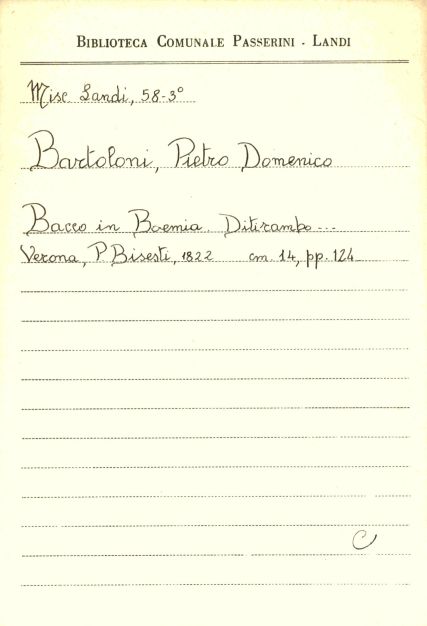 BIBLIOTECA COMUNALE PASSERINI - LANDI
Misc Landi, 58-3°
Bartoloni, Pietro Domenico
Bacco in Boemia. Ditirambo...
Verona, P. Bisesti, 1822 cm. 14, pp. 124
C